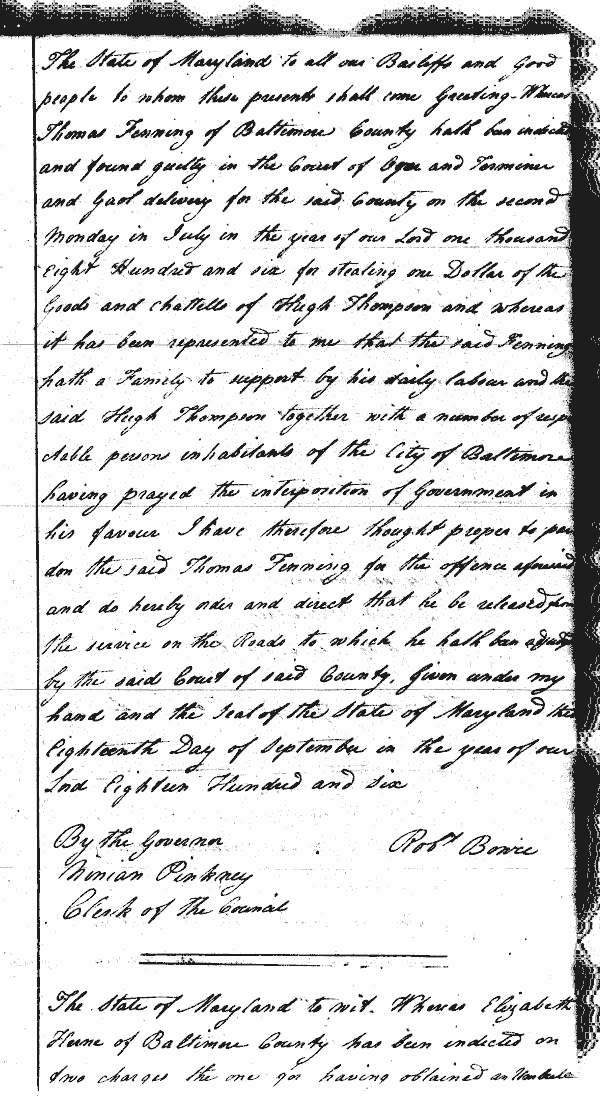 The State of Maryland to all our Bailiffs and good
people to whom these presents shall come Greeting - Whereas
Thomas Fenning of Baltimore County hath ben indicted
and found guilty in the Court of Oyer and Terminer
and Gaol delivery for the said County on the second
Monday in July in the year of our Lord one thousand
Eight Hundred and six for stealing one Dollar of the
Goods and chattells of Hugh Thompson and whereas
it has been represented to me that the said Fenning
hath a Family to support by his daily labour and the
said Hugh Thompson together with a number of respe
ctable persons inhabitants of the City of Baltimore
having prayed the interposition of Government in
his favour I have therefore thought proper to par
don the said Thomas Fenning for the offence aforesaid
and do hereby order and direct that he be released from
the service on the Roads to which he hath ben adjudged
by the said Court of said County. Given under my
hand and the Seal of the State of Maryland this
Eighteenth Day of September in the year of our
Lord Eighteen Hundred and Six
By the Governor Robt Bowie
Ninian Pinkney
Clerk of the Council
The State of Maryland to wit. Whereas Elizabeth
of Baltimore County has been indicted on
two charges the one for having obtained an